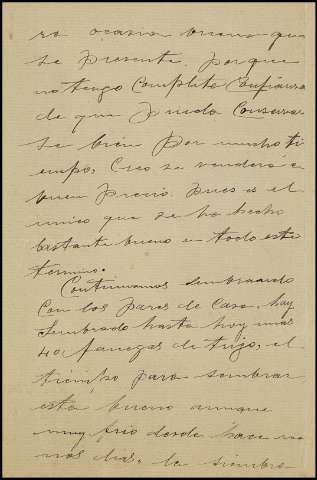 ra ocasion buena que
se presente, porque
no tengo completa confianza
de que pueda conservar
se bien por mucho ti
empo, Creo se venderá á
buen precio. Pues es el
unico que se ha hecho
bastante bueno en todo este
termino.
Continuamos sembrando
con los pares de casa, hay
sembrado hasta hoy unas
40, fanegas de trigo, el
tiempo para sembrar
está bueno aunque
muy frio desde hace u
nos dias, la siembra